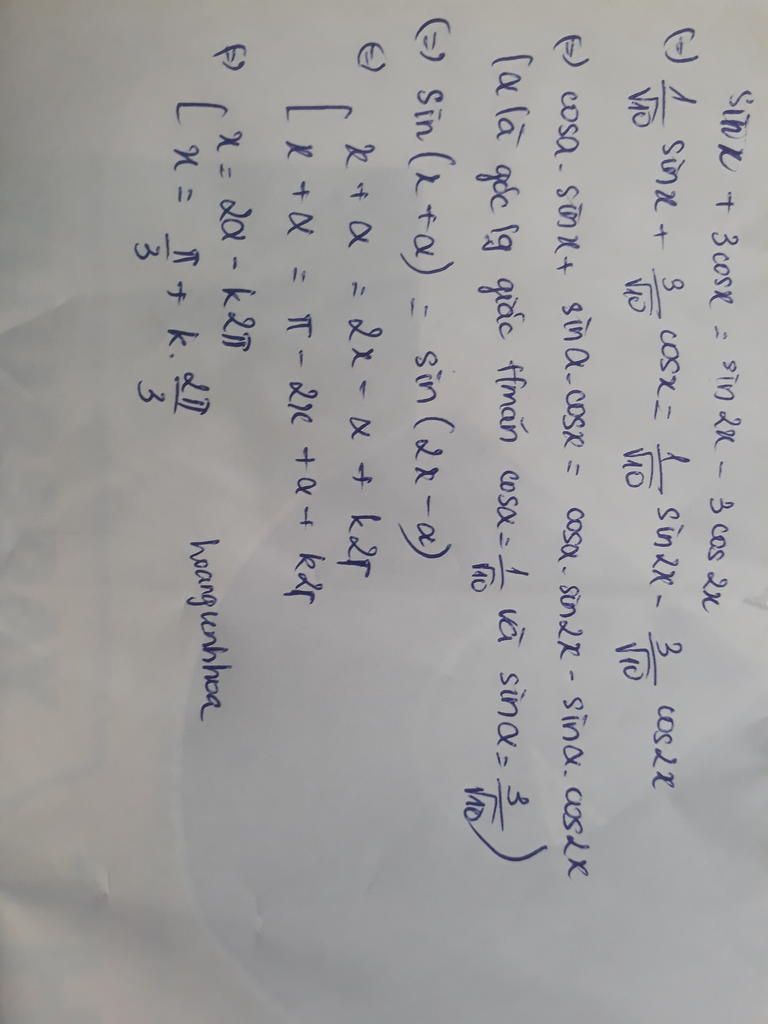 sinx + 3cosx = sin2x - 3cos2x
(=) 1/√10 sinx + 3/√10 cosx = 1/√10 sin2x - 3/√10 cos2x
(=) cosα.sinx + sinα.cosx = cosα.sin2x - sinα.cos2x
(α là góc lg giác t/mãn cosα = 1/√10 và sinα = 3/√10)
(=) sin(x+α) = sin(2x-α)
(=) [ x + α = 2x - α + k2π
x + α = π - 2x + α + k2π
(=) [ x = 2α - k2π
x = π/3 + k.2π/3